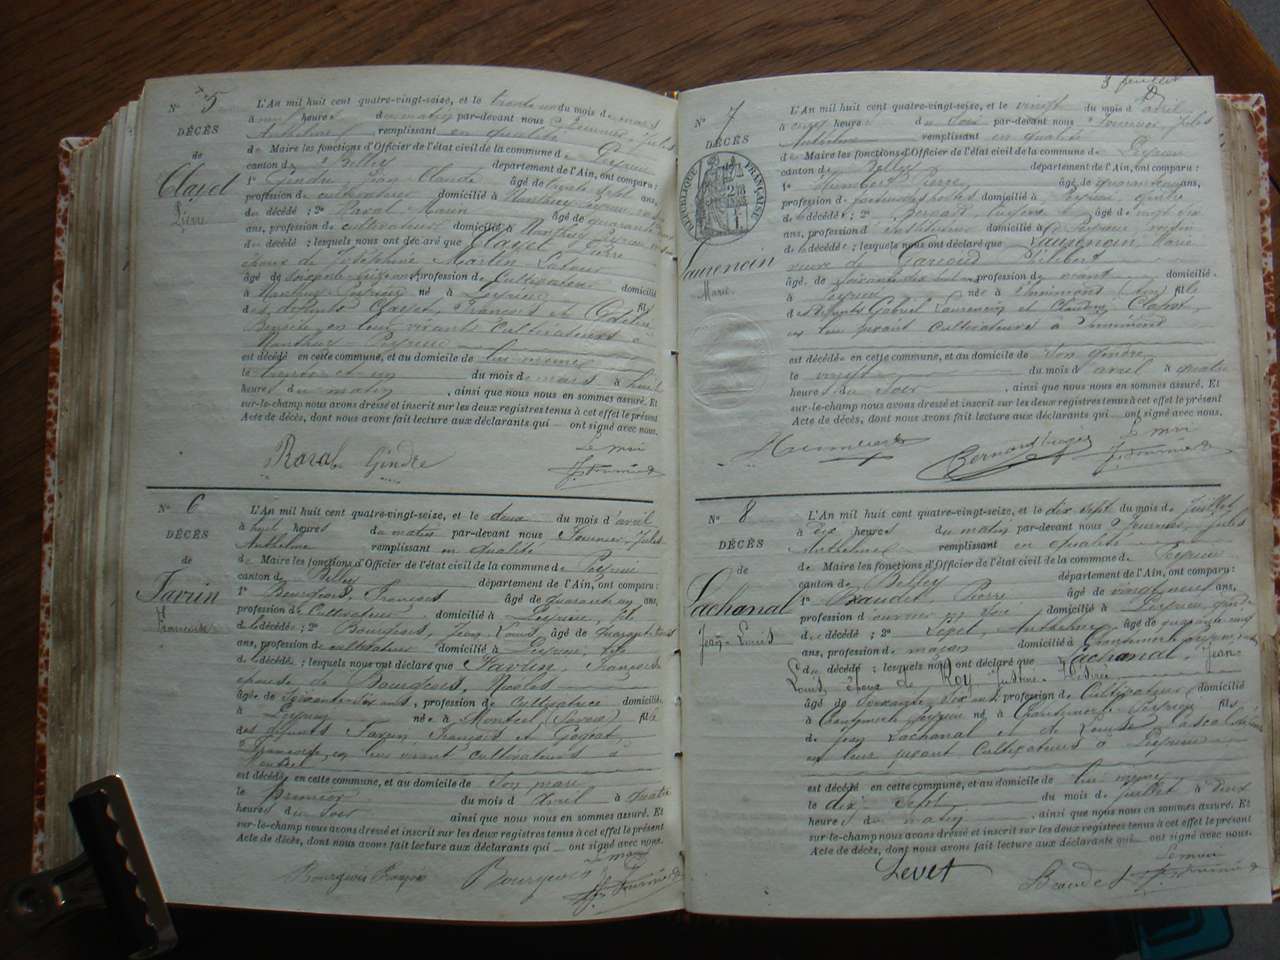 N° 5
DÉCÈS
de
Clayet
Pierre
L'An mil huit cent quatre-vingt-seize, et le trente un du mois de mars
à neuf heures du matin par-devant nous Fournier Jules
Anthelme remplissant en qualité
de Maire les fonctions d'Officier de l'état civil de la commune de Peyrieu
canton de Belley département de l'Ain, ont comparu :
1° Gendre Jean Claude âgé de ans,
profession de cultivateur domicilié à Nantuy Peyrieu
du décédé ; 2° Raval Marin âgé de quarante
ans, profession de cultivateur domicilié à Peyrieu
du décédé ; lesquels nous ont déclaré que Clayet Pierre
époux de Joséphine Martin
âgé de profession de Cultivateur domicilié
à Peyrieu né à Peyrieu fils
des défunts Clayet, François et
Benoite, en leur vivant Cultivateurs à
Peyrieu
est décédé en cette commune, et au domicile de lui même
le trente et un du mois de mars à huit
heures du matin, ainsi que nous nous en sommes assuré. Et
sur-le-champ nous avons dressé et inscrit sur les deux registres tenus à cet effet le présent
Acte de décès, dont nous avons fait lecture aux déclarants qui ont signé avec nous.
Le maire
Raval Gindre J. Fournier
N° 6
DÉCÈS
de
Favrin
Françoise
L'An mil huit cent quatre-vingt-seize, et le deux du mois d'avril
à huit heures du matin par-devant nous Fournier Jules
Anthelme remplissant en qualité
de Maire les fonctions d'Officier de l'état civil de la commune de Peyrieu
canton de Belley département de l'Ain, ont comparu :
1° Bourgeois, François âgé de quarante un ans,
profession de Cultivateur, domicilié à Peyrieu, fils
de la décédée ; 2° Bourgeois, Jean Louis, âgé de
ans, profession de cultivateur domicilié à Peyrieu, fils
de la décédée ; lesquels nous ont déclaré que Favrin, Françoise
épouse de Bourgeois, Nicolas
âgée de soixante-dix ans, profession de Cultivatrice domiciliée
à Peyrieu née à Montcel (Savoie) fille
des défunts Favrin François et
Françoise, en leur vivant cultivateurs à
Montcel
est décédée en cette commune, et au domicile de son mari
le premier du mois d'Avril à quatre
heures du soir ainsi que nous nous en sommes assuré. Et
sur-le-champ nous avons dressé et inscrit sur les deux registres tenus à cet effet le présent
Acte de décès, dont nous avons fait lecture aux déclarants qui ont signé avec nous.
Le maire
Bourgeois François Bourgeois J. Fournier
3 feuillet
N° 7
DÉCÈS
de
RÉPUBLIQUE FRANÇAISE
Laurencin
Marie
L'An mil huit cent quatre-vingt-seize, et le vingt du mois d'avril
à onze heures du soir par-devant nous Fournier Jules
Anthelme remplissant en qualité
de Maire les fonctions d'Officier de l'état civil de la commune de Peyrieu
canton de Belley département de l'Ain, ont comparu :
1° Humbert Pierre âgé de quarante ans,
profession de domicilié à Peyrieu gendre
de la décédée ; 2° Bernard Eugène âgé de vingt six
ans, profession d'instituteur domicilié à Peyrieu voisin
de la décédée ; lesquels nous ont déclaré que Laurencin, Marie
veuve de Philibert
âgée de soixante dix ans, profession de domiciliée
à Peyrieu née à (Ain) fille
des défunts Gabriel Laurencin et Claudine
en leur vivant Cultivateurs à
est décédée en cette commune, et au domicile de son gendre
le vingt du mois d'avril à quatre
heures du soir, ainsi que nous nous en sommes assuré. Et
sur-le-champ nous avons dressé et inscrit sur les deux registres tenus à cet effet le présent
Acte de décès, dont nous avons fait lecture aux déclarants qui ont signé avec nous.
Le maire
Humbert Bernard Eugène J. Fournier
N° 8
DÉCÈS
de
Lachanal
Jean-Louis
L'An mil huit cent quatre-vingt-seize, et le dix sept du mois de Juillet
à dix heures du matin par-devant nous Fournier, Jules
Anthelme remplissant en qualité
de Maire les fonctions d'Officier de l'état civil de la commune de Peyrieu
canton de Belley département de l'Ain, ont comparu :
1° Beaudet Pierre âgé de vingt neuf ans,
profession d'ouvrier en soie domicilié à Peyrieu
du décédé ; 2° Levet, Anthelme âgé de quarante neuf
ans, profession de maçon domicilié à Chantemerle
du décédé ; lesquels nous ont déclaré que Lachanal, Jean-
Louis, époux de Roy, Justine
âgé de soixante six ans, profession de Cultivateur domicilié
à Chantemerle Peyrieu né à Chantemerle Peyrieu fils
de Jean Lachanal et de Louise
en leur vivant Cultivateurs à Peyrieu
est décédé en cette commune, et au domicile de lui même
le dix sept du mois de juillet à deux
heures du matin, ainsi que nous nous en sommes assuré. Et
sur-le-champ nous avons dressé et inscrit sur les deux registres tenus à cet effet le présent
Acte de décès, dont nous avons fait lecture aux déclarants qui ont signé avec nous.
Le maire
Levet Beaudet J. Fournier